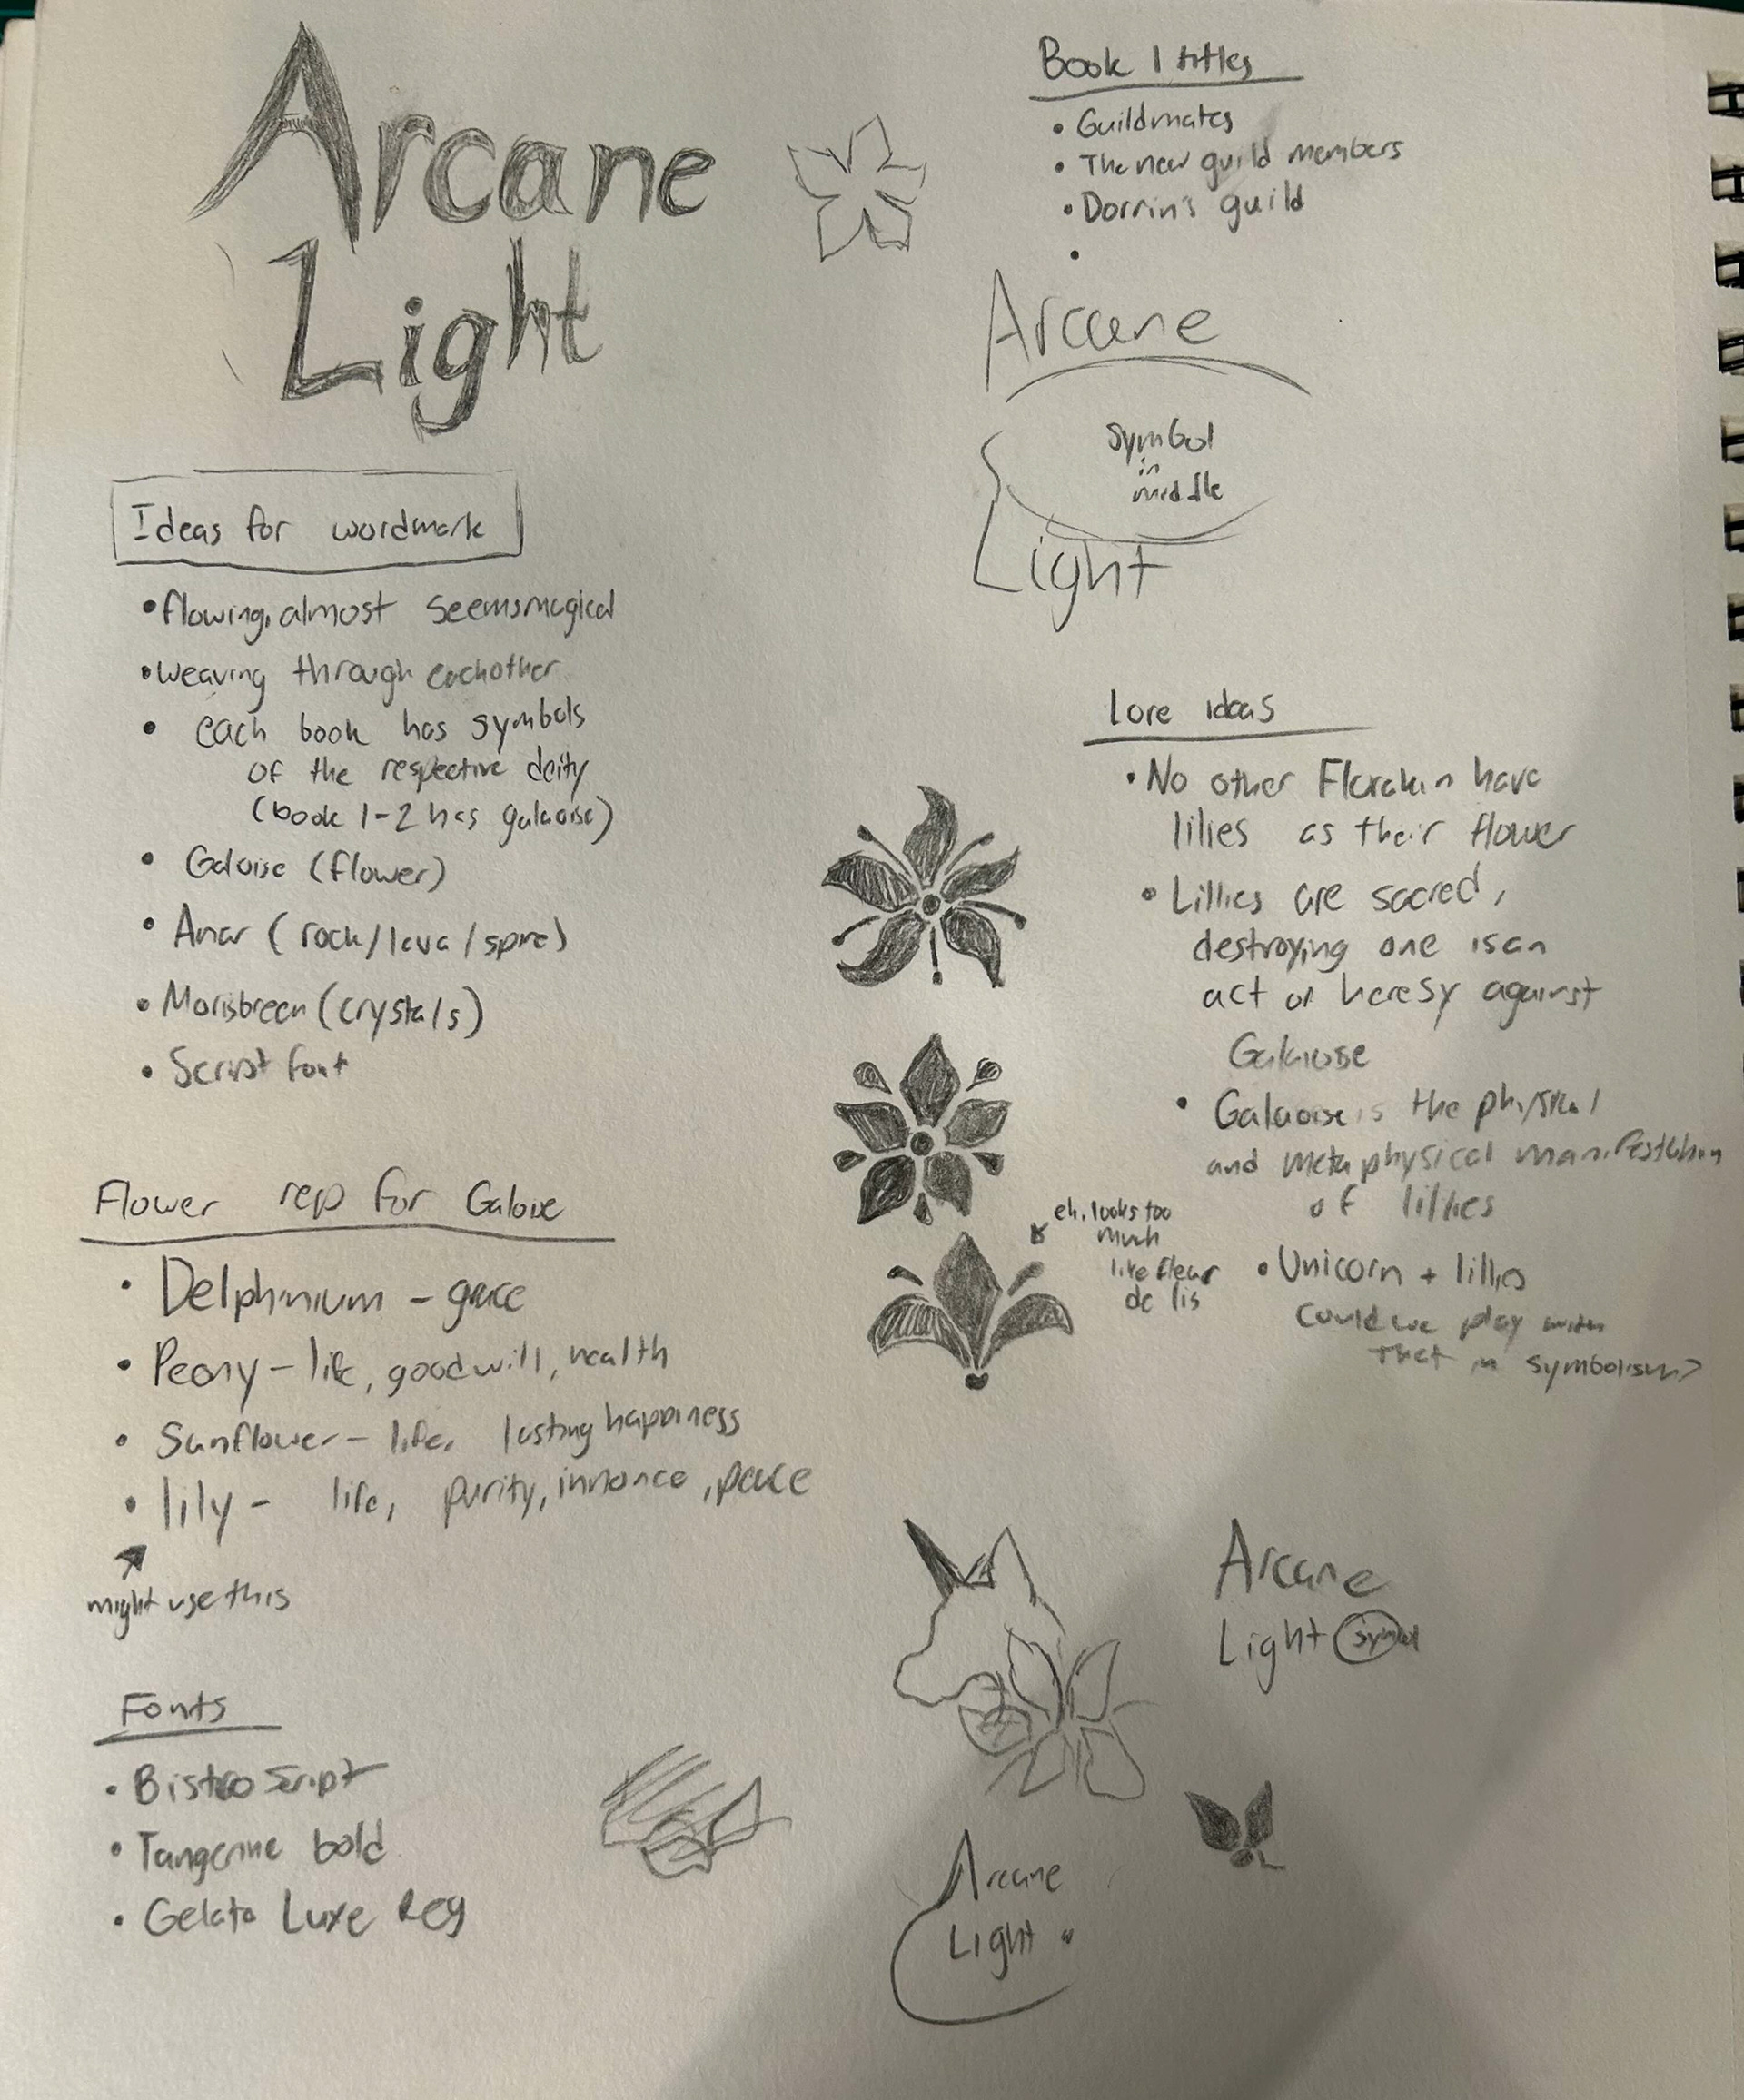 Arcane
Light
Ideas for wordmark
• flowing, almost seems magical
• weaving through eachother
• each book has symbols
of the respective deity
(book 1-2 has galaoise)
• Galoise (flower)
• Anar (rock/lava/spire)
• (crystals)
• Script font
Flower rep for Galoise
• Delphinium - grace
• Peony - life, goodwill, health
• Sunflower - life, lasting happiness
• lily - life, purity, innonce, peace
might use this
Fonts
• Bistro Script
• Tangerine bold
• Gelato Luxe Reg
Book 1 titles
• Guildmates
• The new guild members
• Dorrin's guild
•
Arcane
symbol
in
middle
Light
Lore ideas
• No other Florakin have
lilies as their flower
• Lillies are sacred,
destroying one is an
act of heresy against
Galaoise
• Galaoise is the physical
and metaphysical manifestation
of lillies
eh, looks too
much
like flear
de lis
• Unicorn + lillies
could we play with
that in symbolism?
Arcane
Light symbol
Arcane
Light